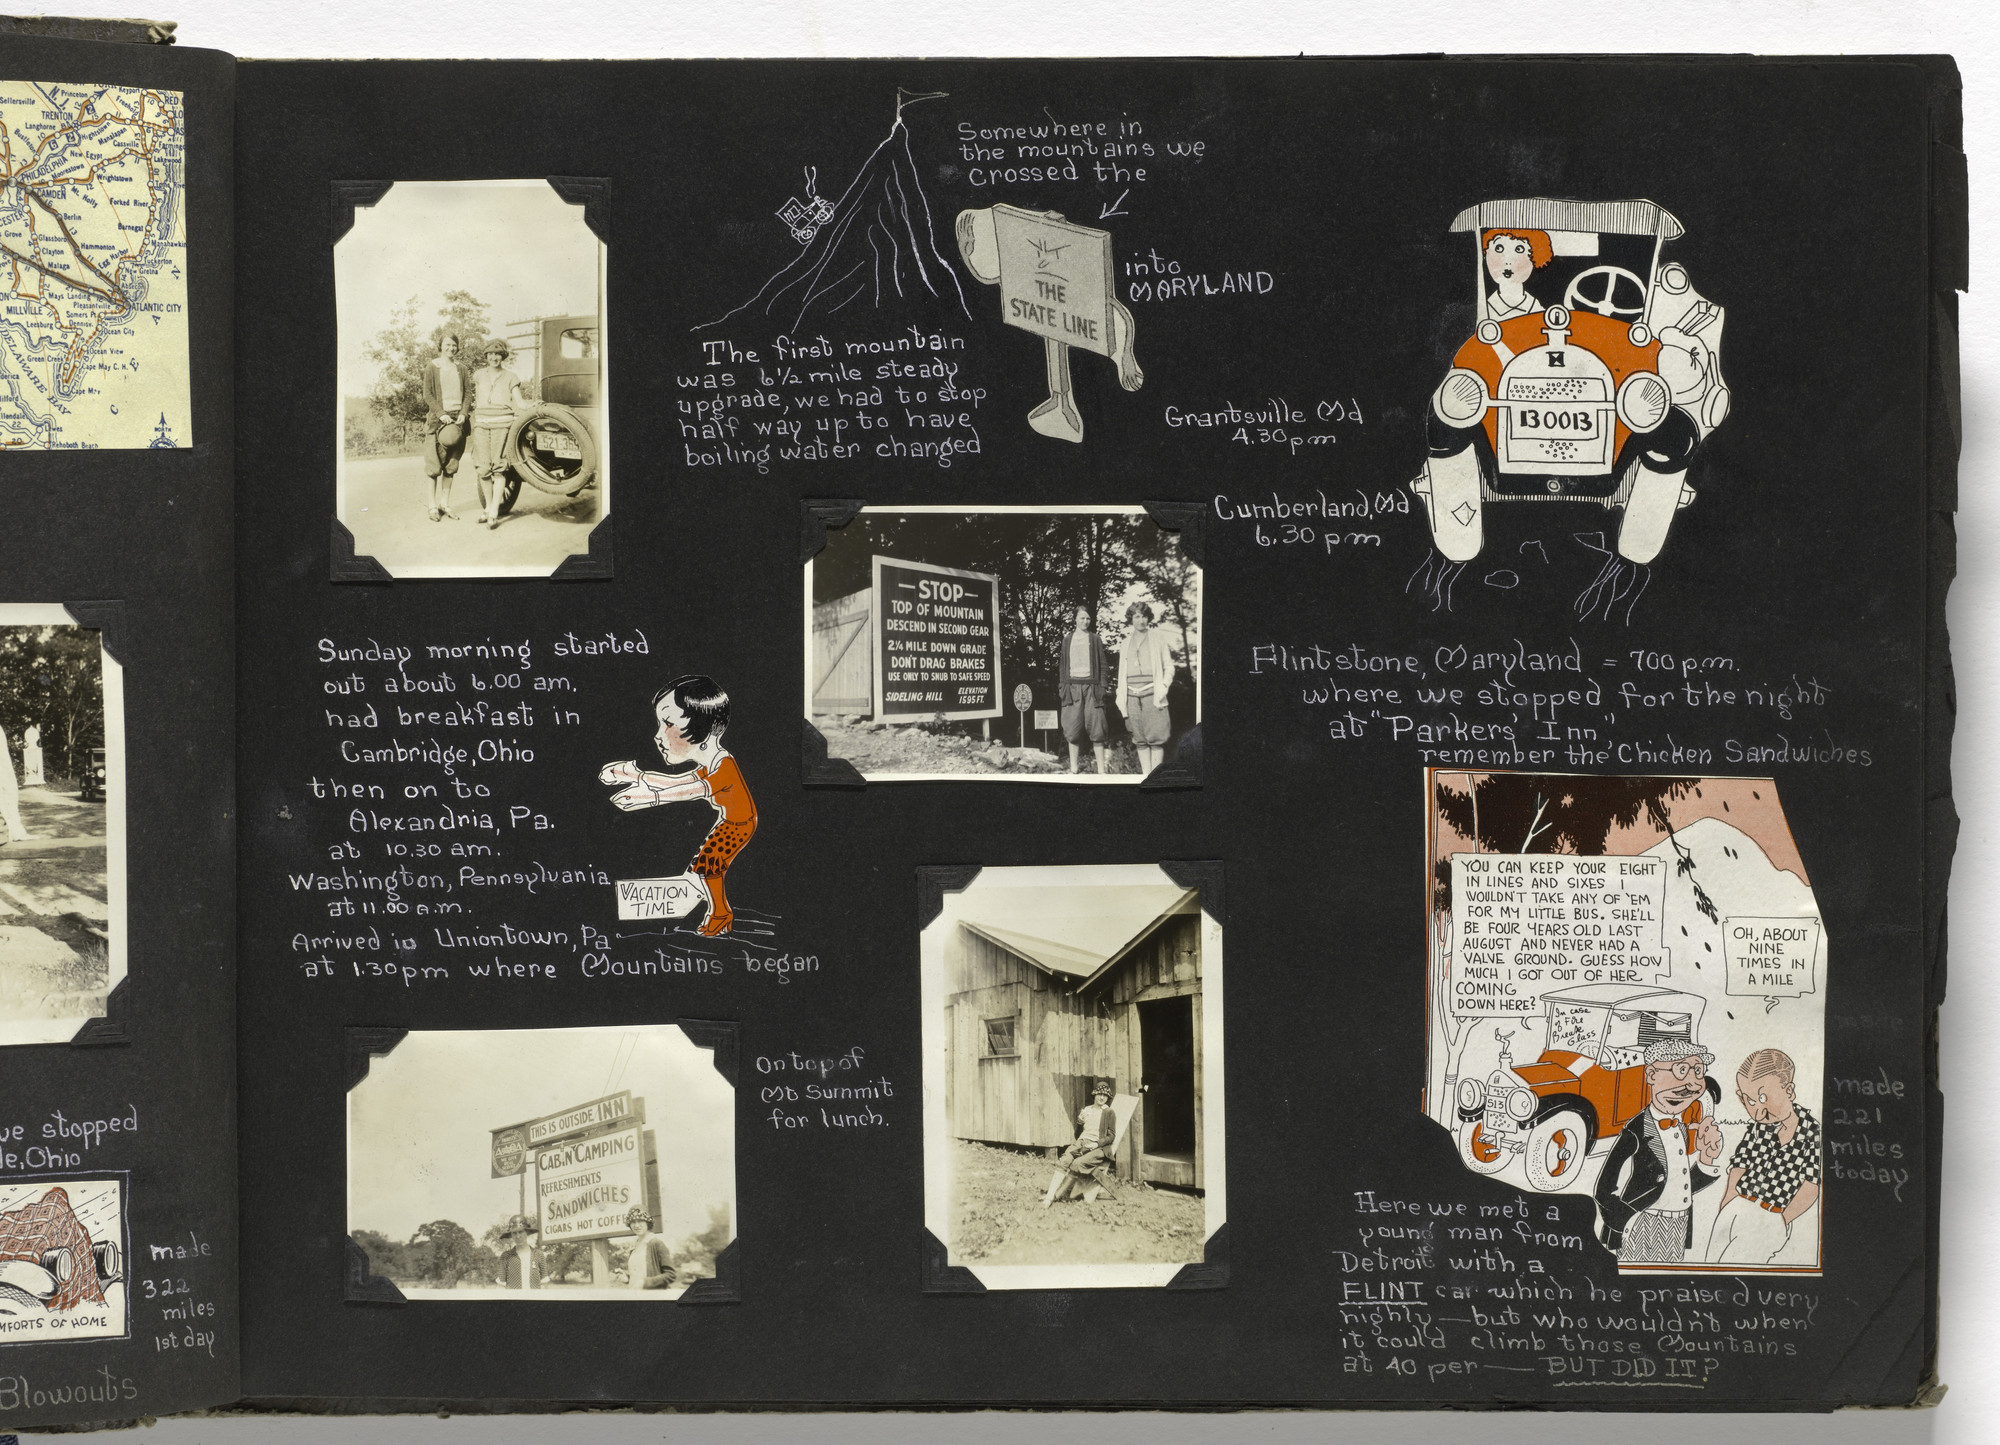 Sunday morning started
out about 6.00 am.
had breakfast in
Cambridge, Ohio
then on to
Alexandria, Pa.
at 10.30 am.
Washington, Pennsylvania
at 11.00 a.m.
Arrived in Uniontown, Pa
at 1.30pm where Mountains began
VACATION
TIME
521.369
THIS IS OUTSIDE INN
CABIN CAMPING
REFRESHMENTS
SANDWICHES
CIGARS HOT COFF
On top of
Mt Summit
for lunch.
The first mountain
was 6 1/2 mile steady
upgrade, we had to stop
half way up to have
boiling water changed
Somewhere in
the mountains we
crossed the
THE
STATE LINE
into
MARYLAND
—STOP—
TOP OF MOUNTAIN
DESCEND IN SECOND GEAR
2¼ MILE DOWN GRADE
DON'T DRAG BRAKES
USE ONLY TO SNUB TO SAFE SPEED
SIDELING HILL ELEVATION
1595 FT.
Grantsville Md
4.30pm
Cumberland, Md
6.30 pm
130013
Flintstone, Maryland = 700 p.m.
where we stopped for the night
at "Parkers' Inn"
remember the Chicken Sandwiches
YOU CAN KEEP YOUR EIGHT
IN LINES AND SIXES I
WOULDN'T TAKE ANY OF 'EM
FOR MY LITTLE BUS. SHE'LL
BE FOUR YEARS OLD LAST
AUGUST AND NEVER HAD A
VALVE GROUND. GUESS HOW
MUCH I GOT OUT OF HER
COMING
DOWN HERE?
OH, ABOUT
NINE
TIMES IN
A MILE
In case
of Fire
Break
Glass
513
made
221
miles
today
Here we met a
young man from
Detroit with a
FLINT car which he praised very
highly—but who wouldn't when
it could climb those Mountains
at 40 per—BUT DID IT?
Princeton
Keyport
Sellersville
TRENTON
Langhorne
Hightstown
Manalapan
Freehold
Cassville
Farming
New Egypt
Lakewood
PHILADELPHIA
Moorestown
Wrightstown
CAMDEN
Mt. Holly
Forked River
Berlin
Barnegat
Glassboro
Clayton
Hammonton
Manahawkin
Malaga
Egg Harbor
Tuckerton
New Gretna
Absecon
Mays Landing
Pleasantville
ATLANTIC CITY
MILLVILLE
Somers Pt.
Leesburg
Dennisv.
Ocean City
Ocean View
Green Creek
Cape May C. H.
Cape May
DELAWARE BAY
Lewes
Rehoboth Beach
NORTH
we stopped
le, Ohio
MFORTS OF HOME
made
322
miles
1st day
Blowouts